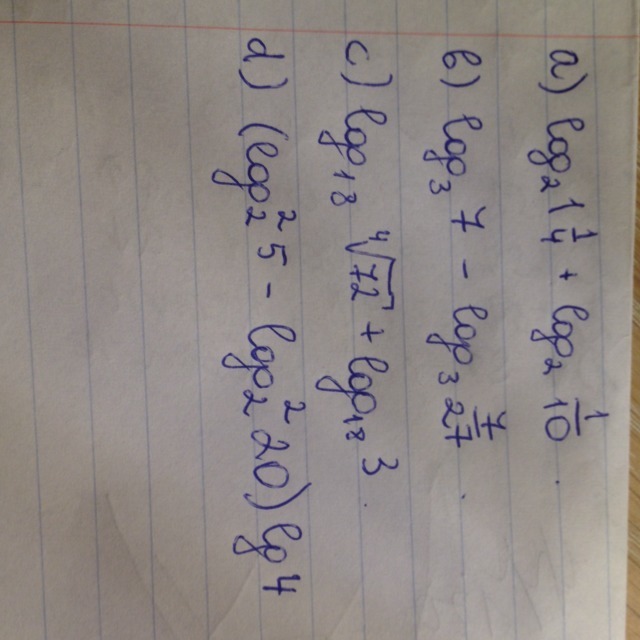 a) log₂ 1 1/4 + log₂ 1/10.
b) log₃ 7 - log₃ 7/27.
c) log₁₈ ⁴√72 + log₁₈ 3.
d) (log₂² 5 - log₂² 20) lg 4